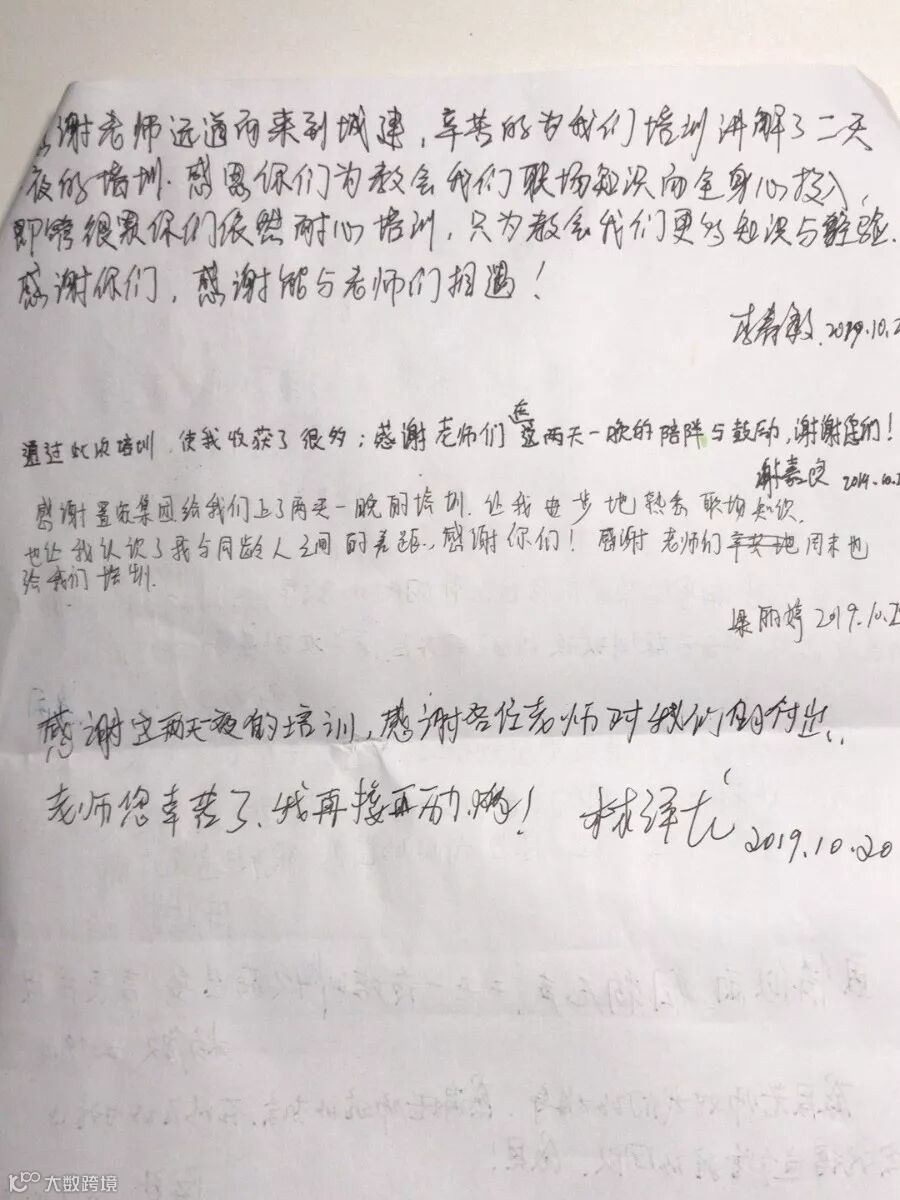 谢老师远道而来到城建，辛苦的为我们培训讲解了二天
夜的培训.感恩你们为教会我们职场知识而全身心投入，
即使很累你们依然耐心培训，只为教会我们更多知识与经验.
感谢你们，感谢能与老师们相遇！
李春敏.2019.10.2
通过此次培训，使我收获了很多；感谢老师们这两天一晚的陪伴与鼓励，谢谢您们！
谢嘉 2019.10.2
感谢置家集团给我们上了两天一晚的培训.让我进步地熟悉职场知识.
也让我认识了我与同龄人之间的差距，感谢你们！感谢老师们辛苦地周末也
给我们培训.
梁丽婷 2019.10.2
感谢这两天夜的培训，感谢各位老师对我们的付出..
老师您辛苦了、我再接再励，！
林泽
2019.10.20
大数跨境